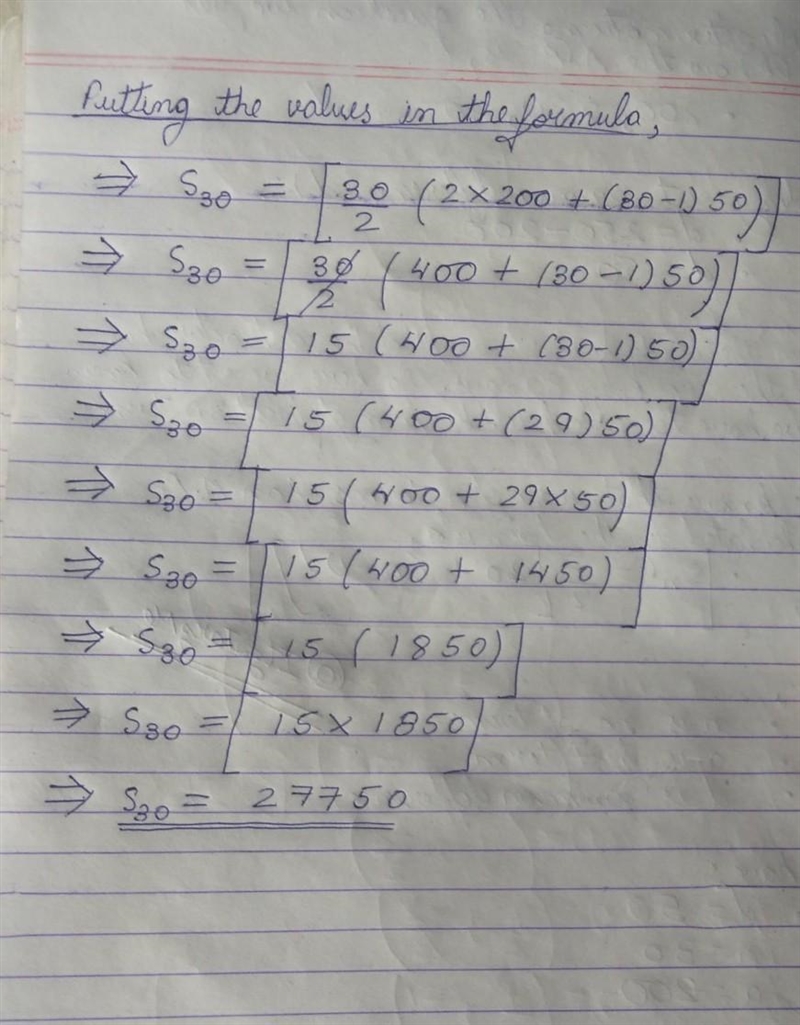 Putting the values in the formula,
⇒ S₃₀ = [30/2 (2×200 + (30-1) 50)]
⇒ S₃₀ = [30/2 (400 + (30-1) 50)]
⇒ S₃₀ = [15 (400 + (30-1) 50)]
⇒ S₃₀ = [15 (400 + (29) 50)]
⇒ S₃₀ = [15 (400 + 29×50)]
⇒ S₃₀ = [15 (400 + 1450)]
⇒ S₃₀ = [15 (1850)]
⇒ S₃₀ = [15 × 1850]
⇒ S₃₀ = 27750